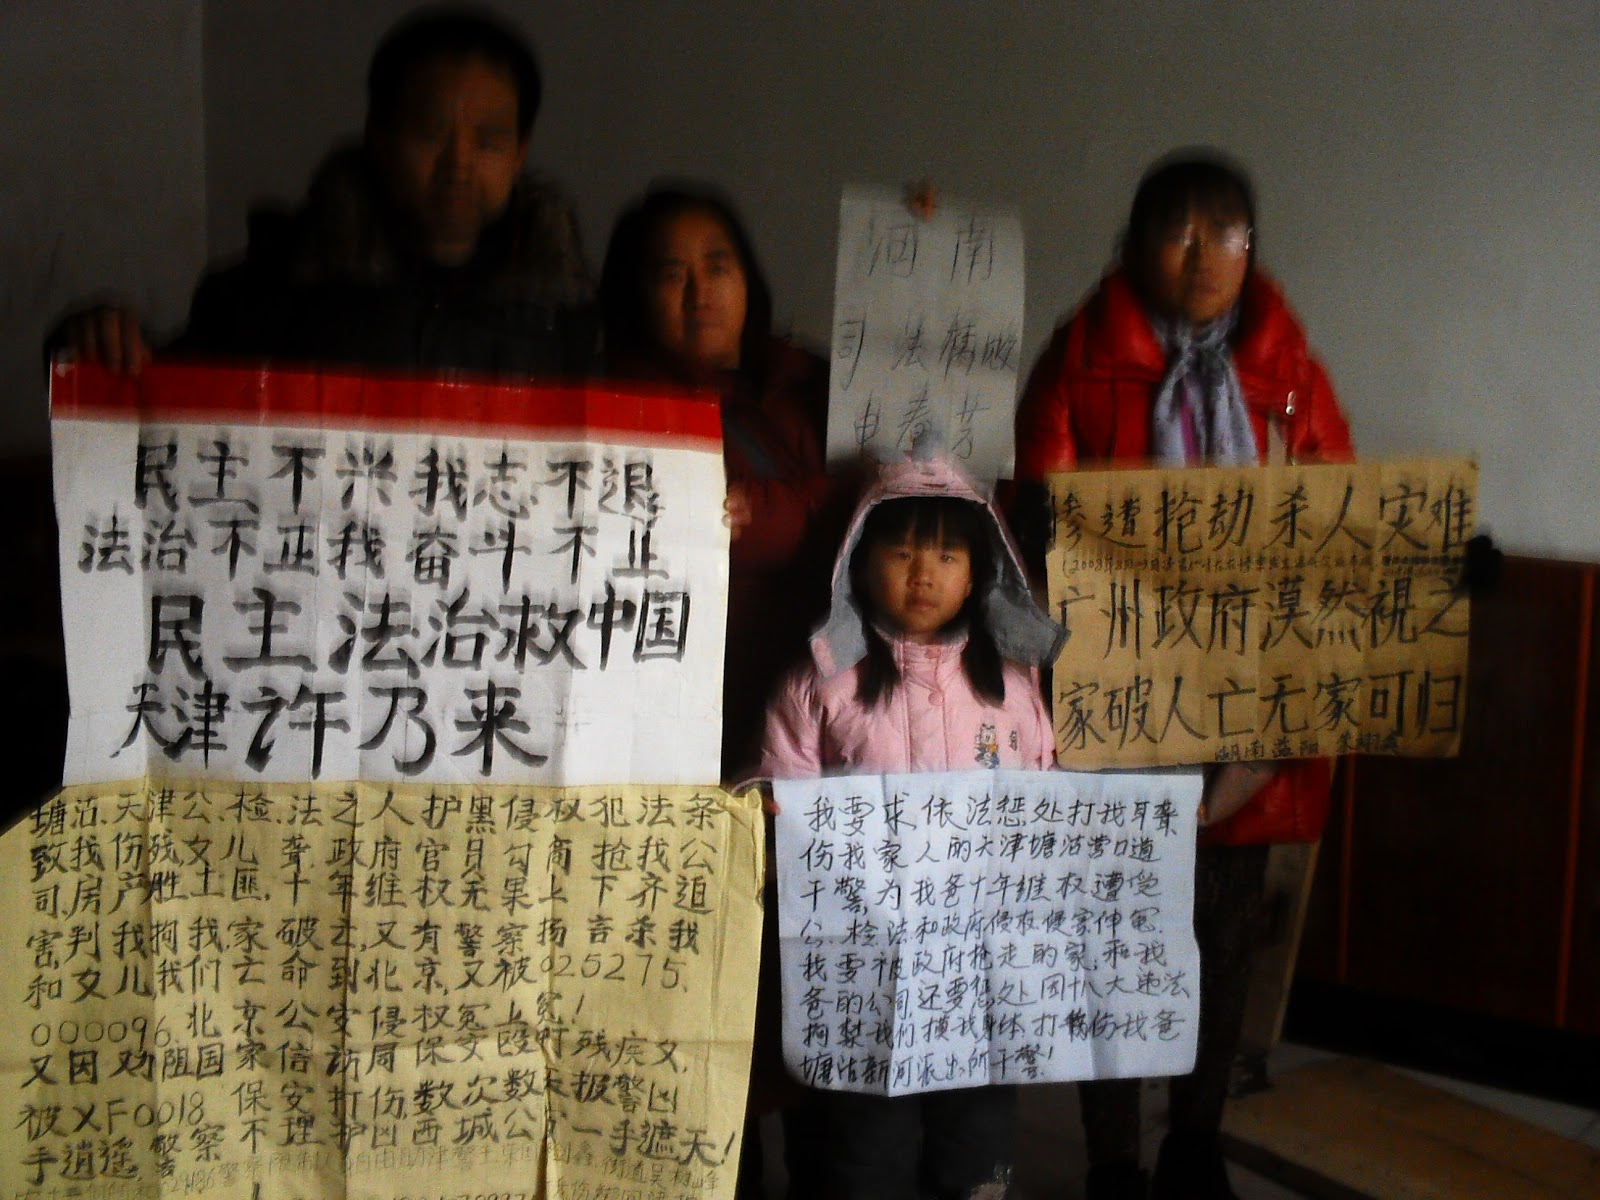 民主不兴我志不退
法治不正我奋斗不止
民主法治救中国
天津许乃来
塘沽.天津公.检.法之人护黑侵权犯法条
致我伤残.女儿聋.政府官员勾商抢我公
司.房产.胜土匪.十年维权无果上下齐迫
害.判我拘我.家破之.又有警察扬言杀我
和女儿.我们亡命到北京.又被025275.
000096.北京公安侵权冤上冤!
又因劝阻国家信访局保安殴打残疾又
被XF0018保安打伤.数次数天报警凶
手逍遥.警察不理护凶西城公安一手遮天!
河南
司法腐败
申春芳
惨遭抢劫杀人灾难
广州政府漠然視之
家破人亡无家可归
湖南益阳
我要求依法惩处打我耳聋
伤我家人的天津塘沽营口道
干警,为我爸十年维权遭受
公.检.法和政府侵权侵害伸冤.
我要被政府抢走的家;和我
爸的公司.还要惩处因十八大违法
拘禁我们摸我身体.打我伤我爸
塘沽新河派出所干警!